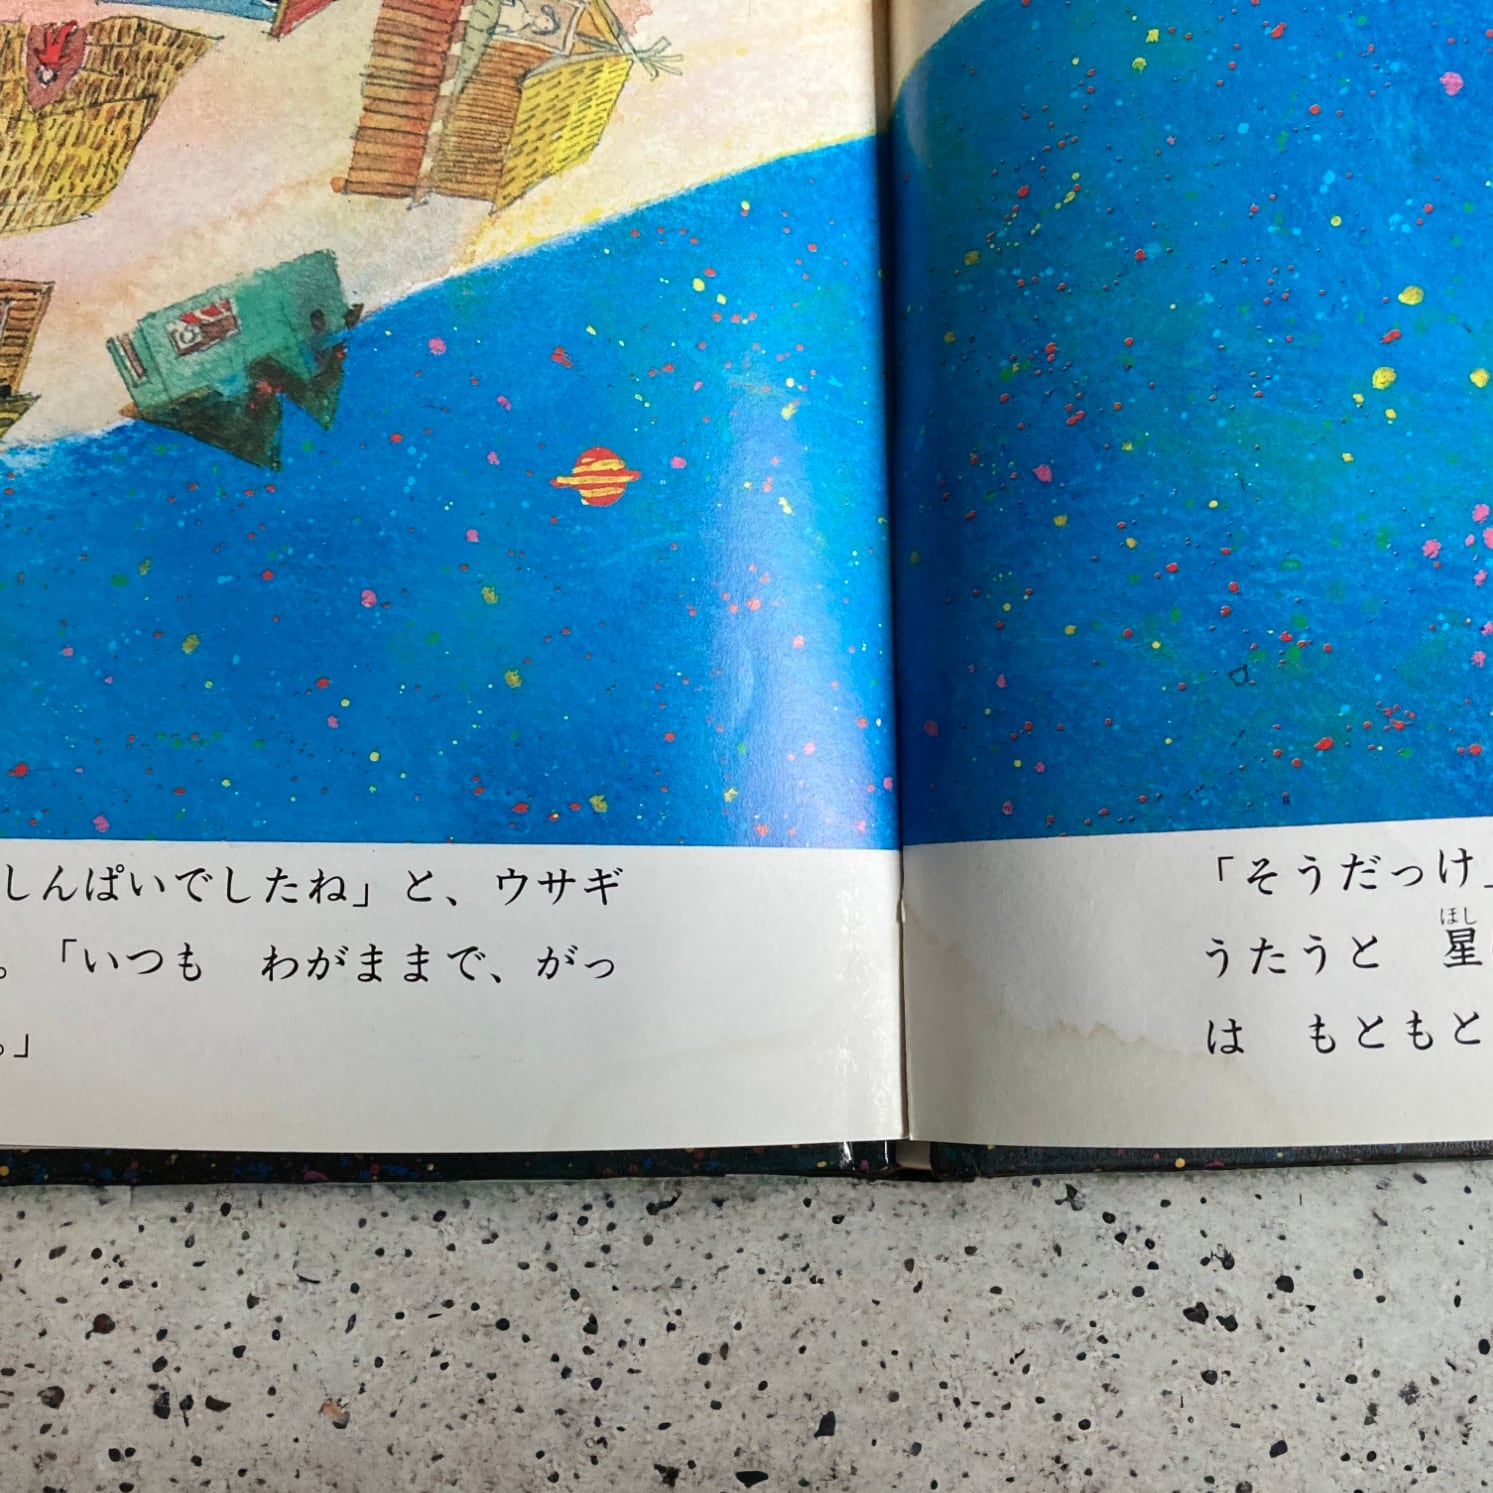 しんぱいでしたね」と、ウサギ
。「いつも　わがままで、がっ
。」
「そうだっけ」
うたうと　星
ほし
は　もともと